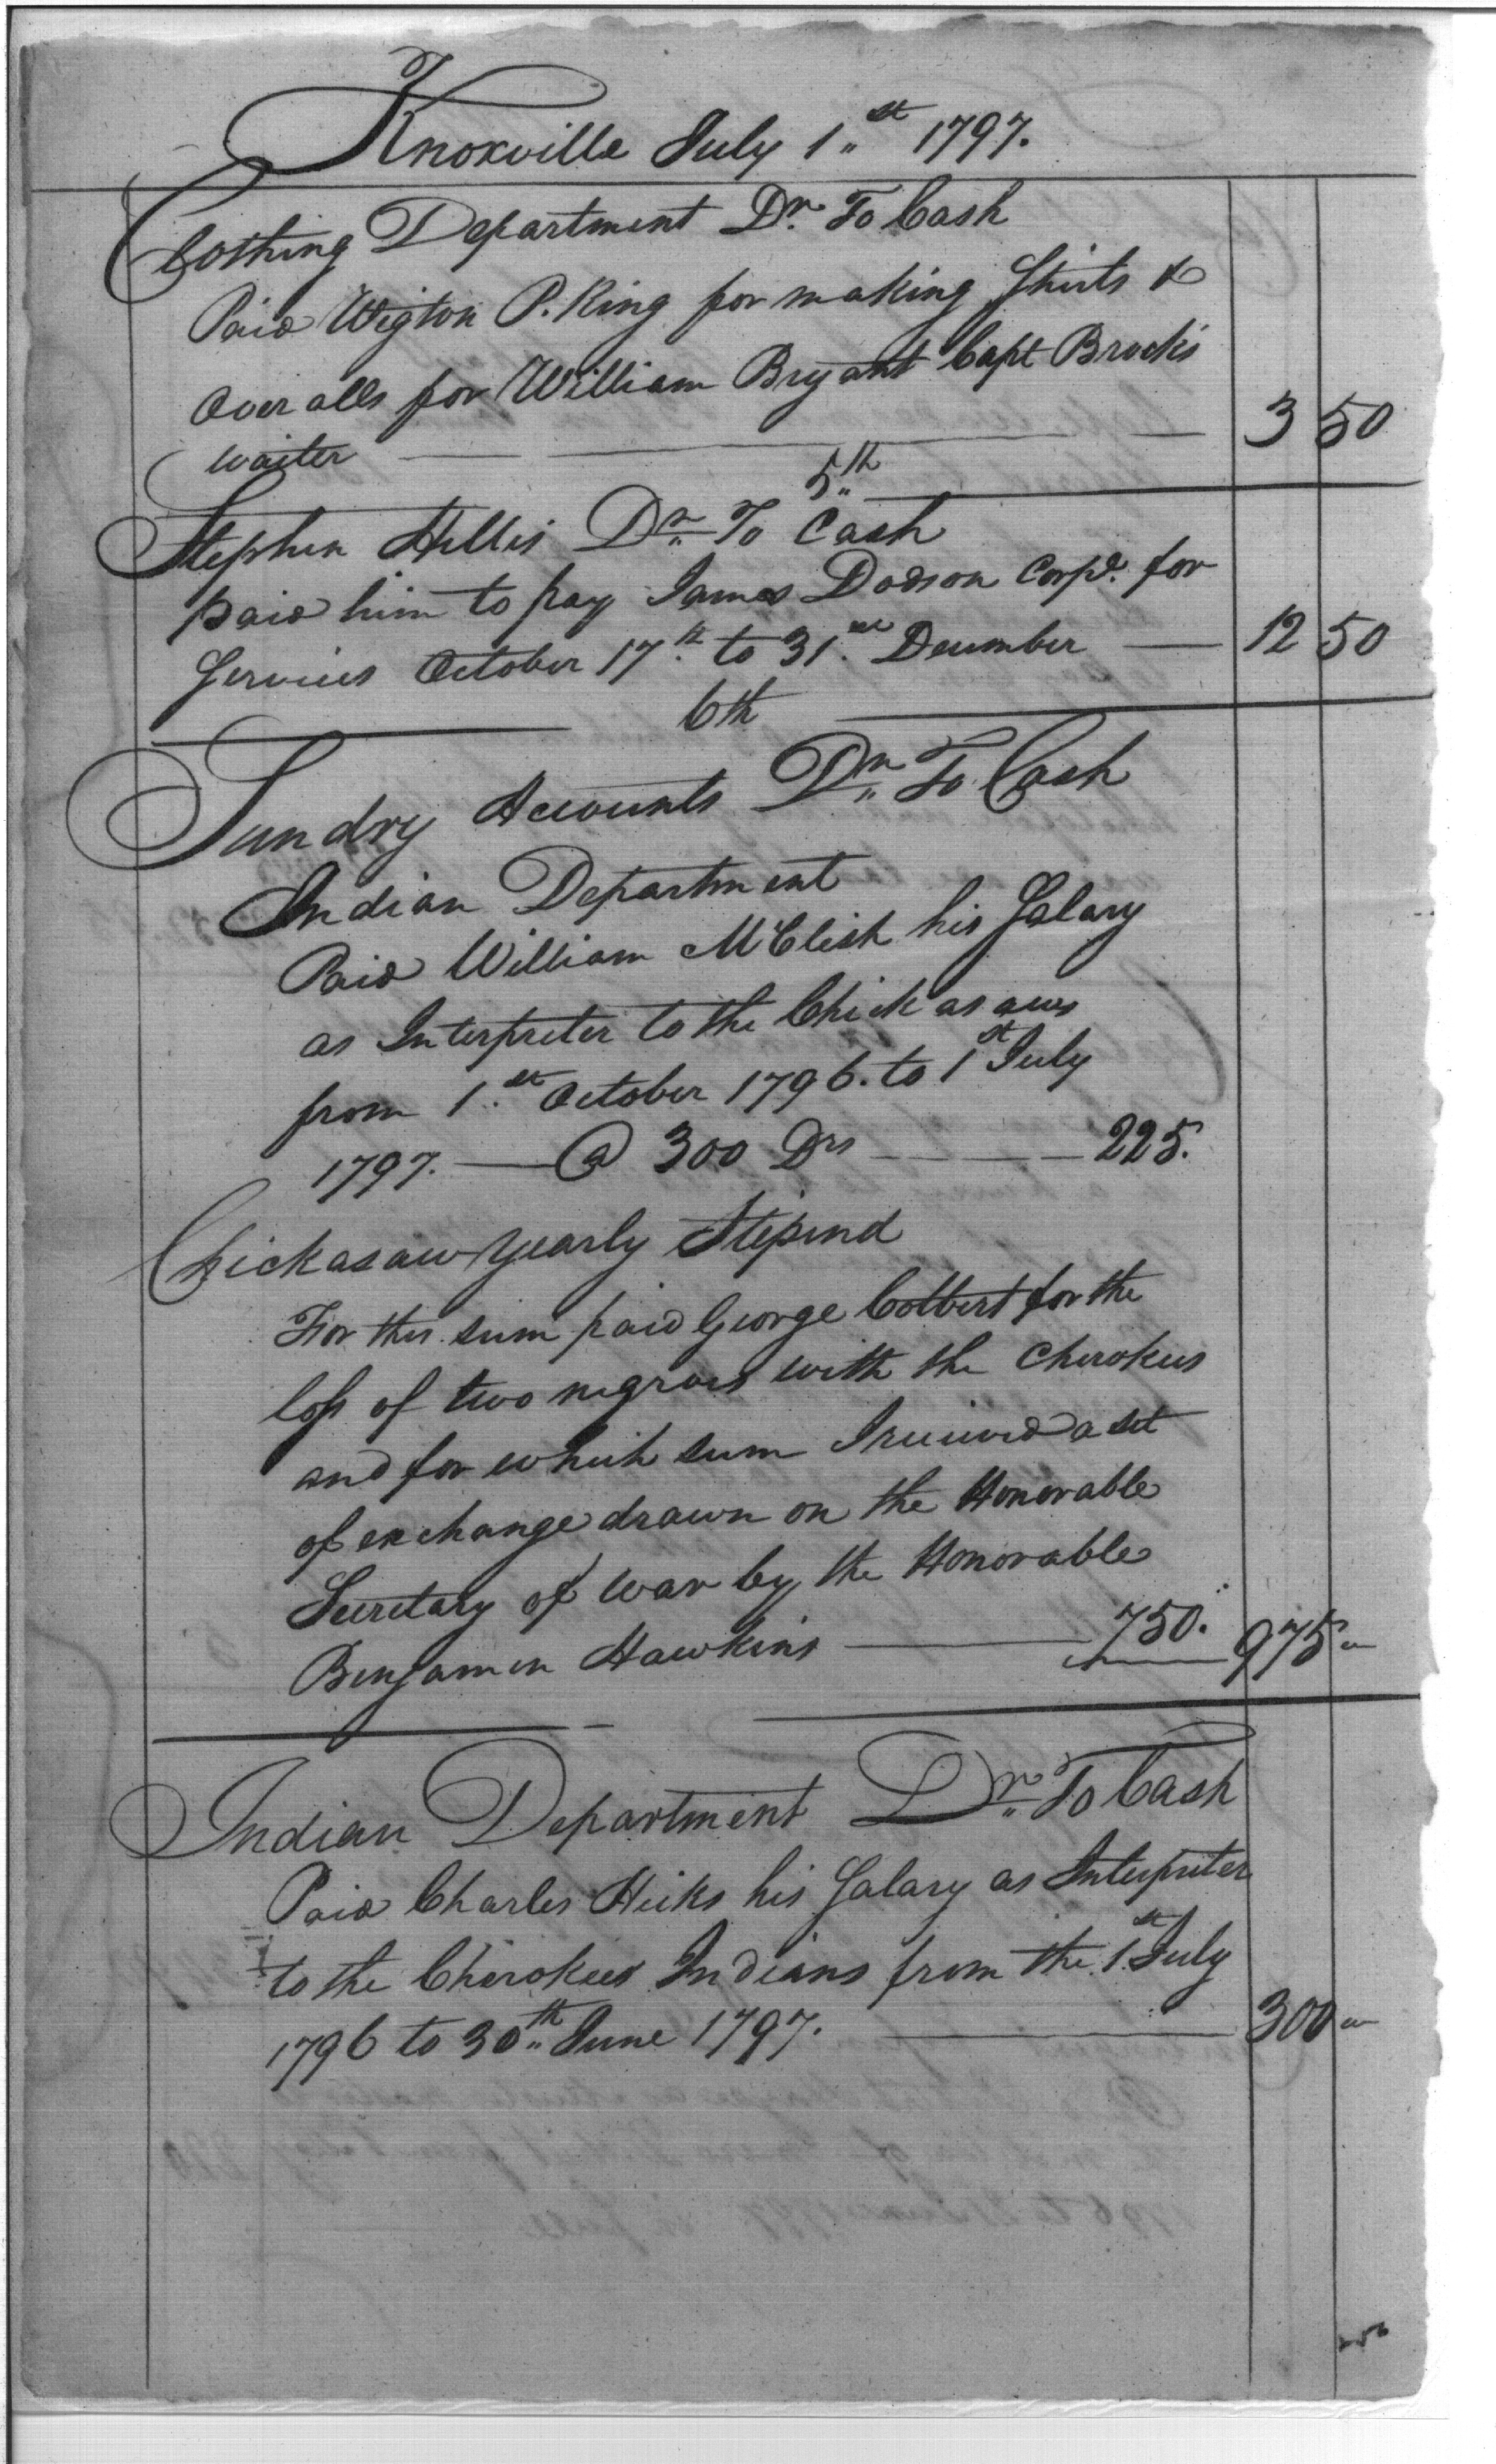 Knoxville July 1st 1797.
Clothing Department Dr. To Cash
Paid Wigton P. King for making Shirts &
Overalls for William Bryant Capt Brocks
waiter 3 50
5th
Stephen Hillis Dr. To Cash
paid him to pay James Dodson Corpl. for
Services October 17th to 31st December 12 50
6th
Sundry Accounts Dr. To Cash
Indian Department
Paid William McClish his Salary
as Interpreter to the Chickasaws
from 1st October 1796. to 1st July
1797. @ 300 Drs 225.
Chickasaw Yearly Stipend
For this sum paid George Colbert for the
loss of two negroes with the Cherokees
and for which sum I received a set
of exchange drawn on the Honorable
Secretary of War by the Honorable
Benjamin Hawkins 750. 975 "
Indian Department Dr. To Cash
Paid Charles Hicks his Salary as Interpreter
to the Cherokees Indians from the 1st July
1796 to 30th June 1797. 300 "